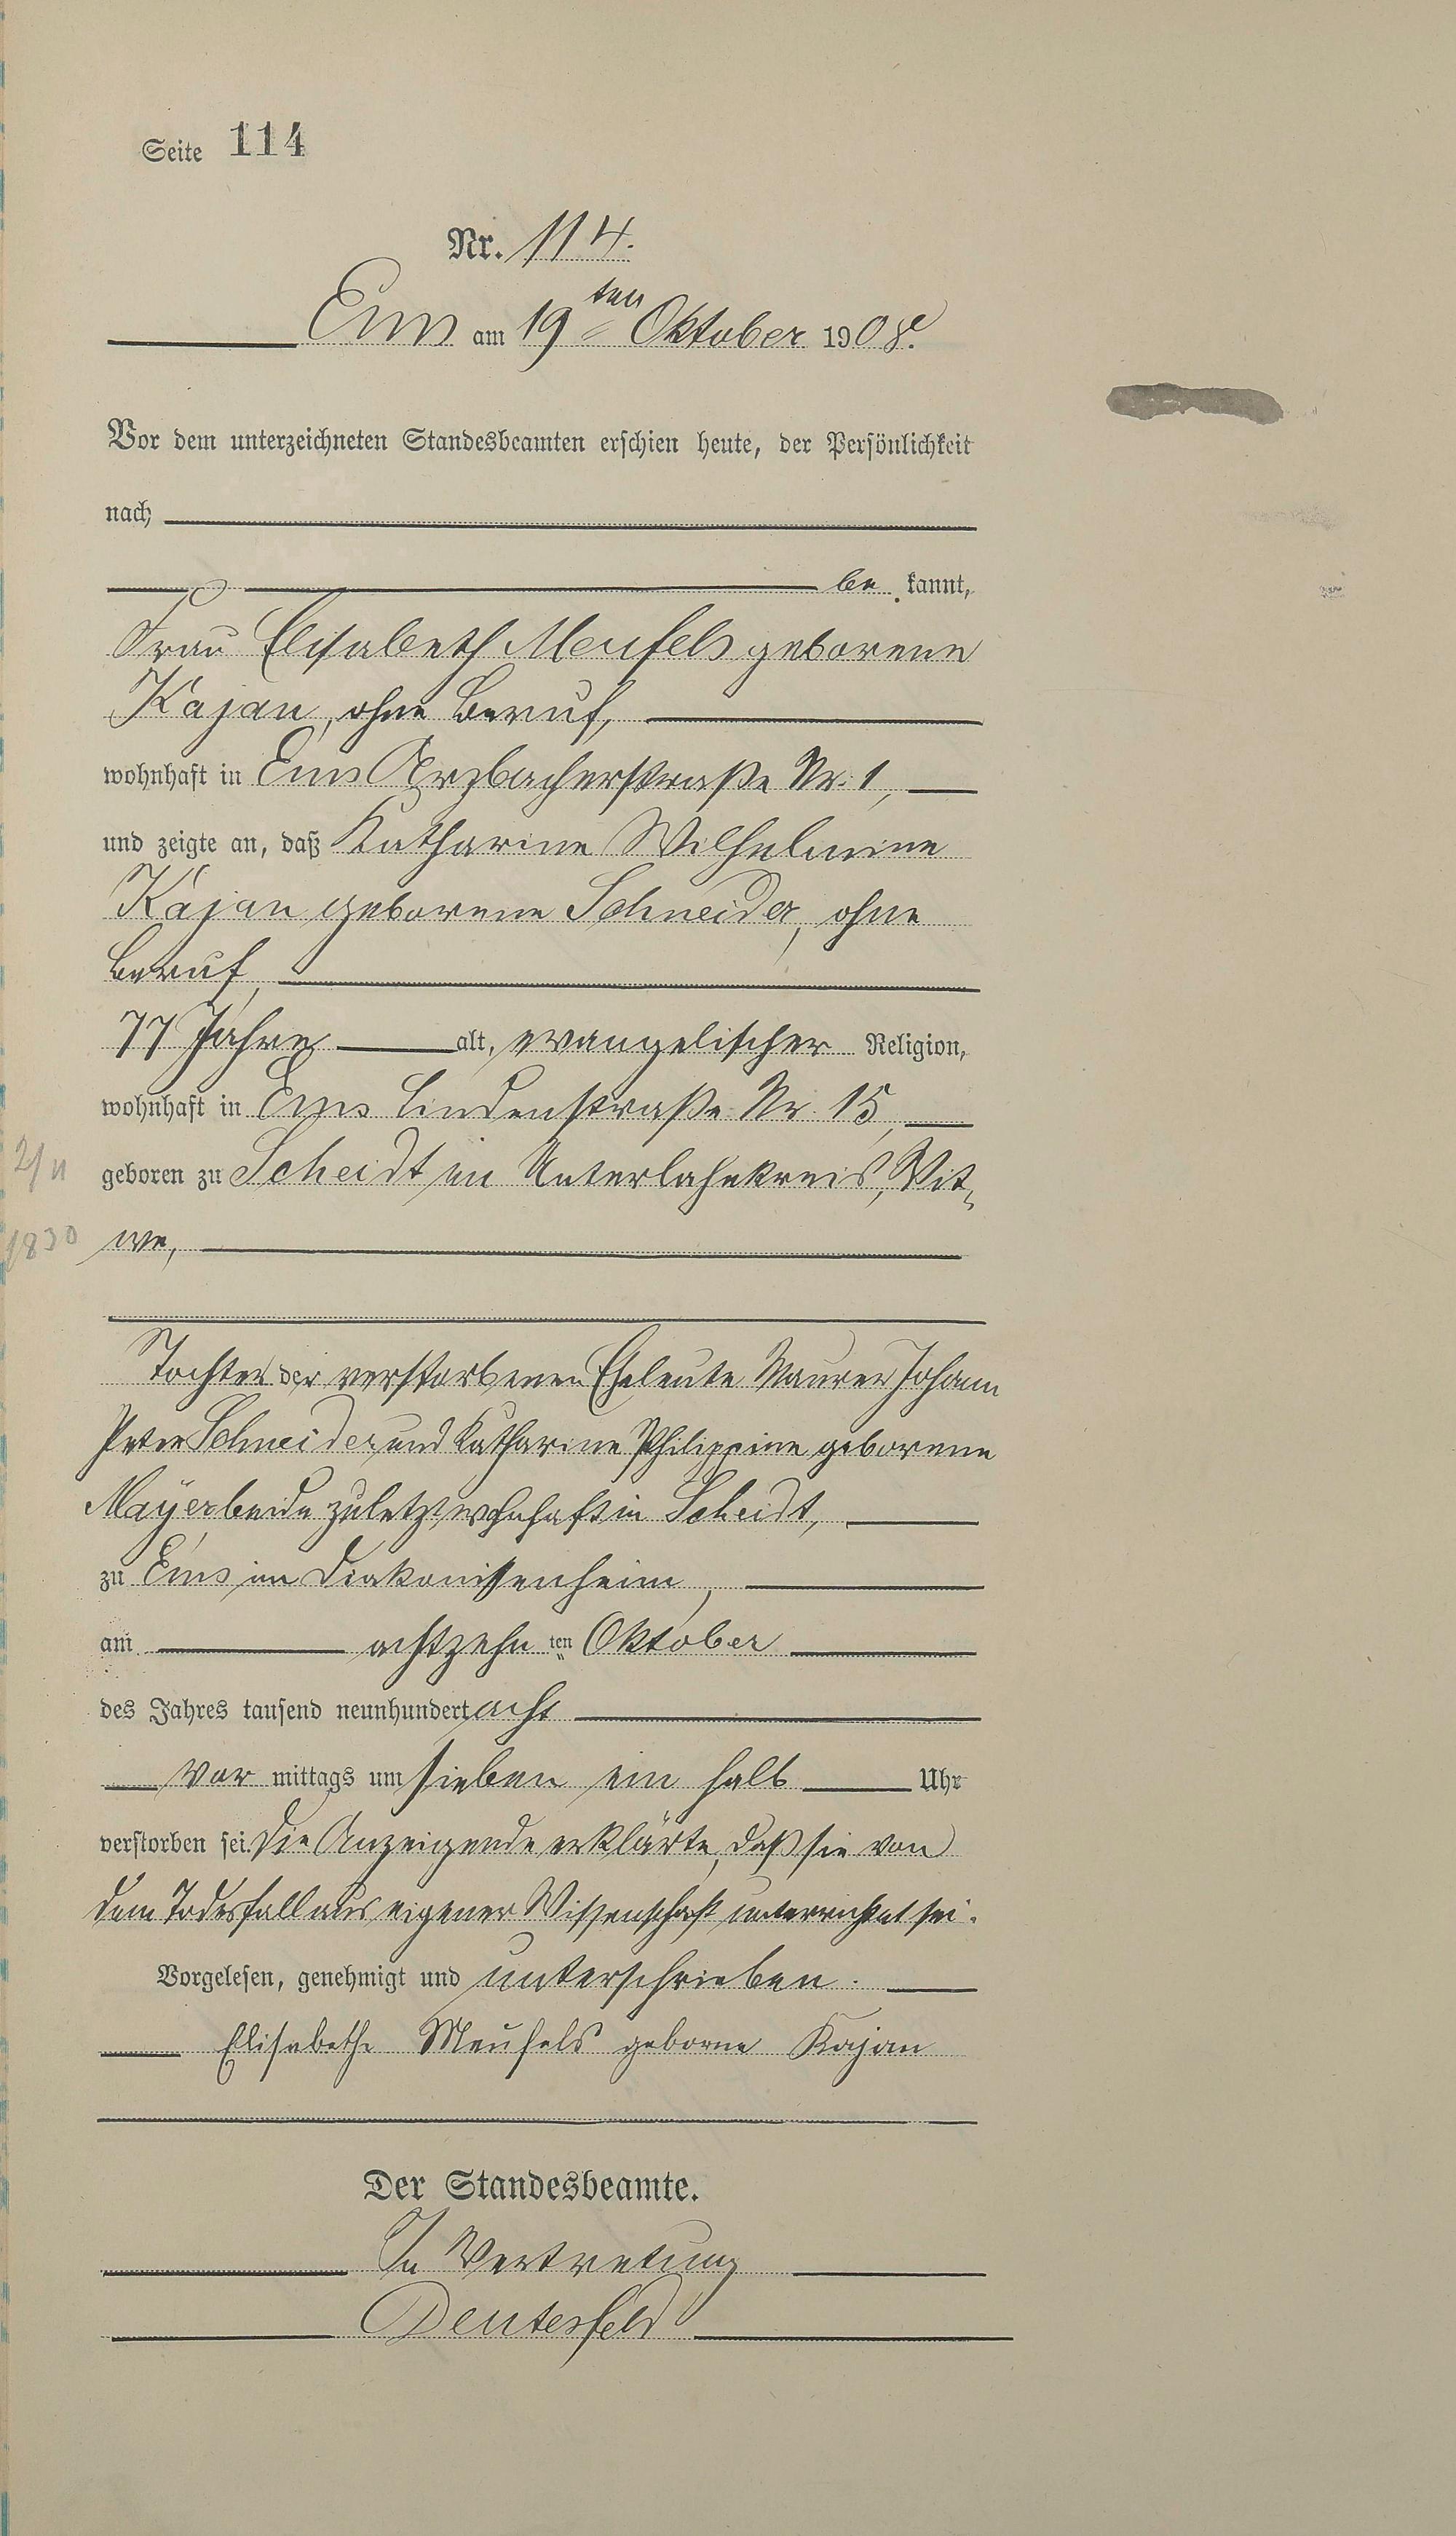 Seite 114
Nr. 114.
Ems am 19ten Oktober 1908.
Vor dem unterzeichneten Standesbeamten erschien heute, der Persönlichkeit
nach
be kannt,
Frau Elisabeth Meusels geborene
Kajan, ohne Beruf,
wohnhaft in Ems Arzbacherstraße Nr. 1,
und zeigte an, daß Katharine Wilhelmine
Kajan geborene Schneider, ohne
Beruf,
77 Jahre alt, evangelischer Religion,
wohnhaft in Ems Lindenstraße Nr. 15,
2/11
geboren zu Scheidt im Unterlahnkreis, Wit-
1830
we,
Tochter der verstorbenen Eheleute Maurer Johann
Peter Schneider und Katharine Philippine geborene
Mayer beide zuletzt wohnhaft in Scheidt,
zu Ems im Diakonissenheim,
am achtzehn ten Oktober
des Jahres tausend neunhundert acht
Vor mittags um sieben ein halb Uhr
verstorben sei. Die Anzeigende erklärte, daß sie von
dem Todesfall aus eigener Wissenschaft unterrichtet sei.
Vorgelesen, genehmigt und unterschrieben.
Elisabethe Meusels geborne Kajan
Der Standesbeamte.
In Vertretung